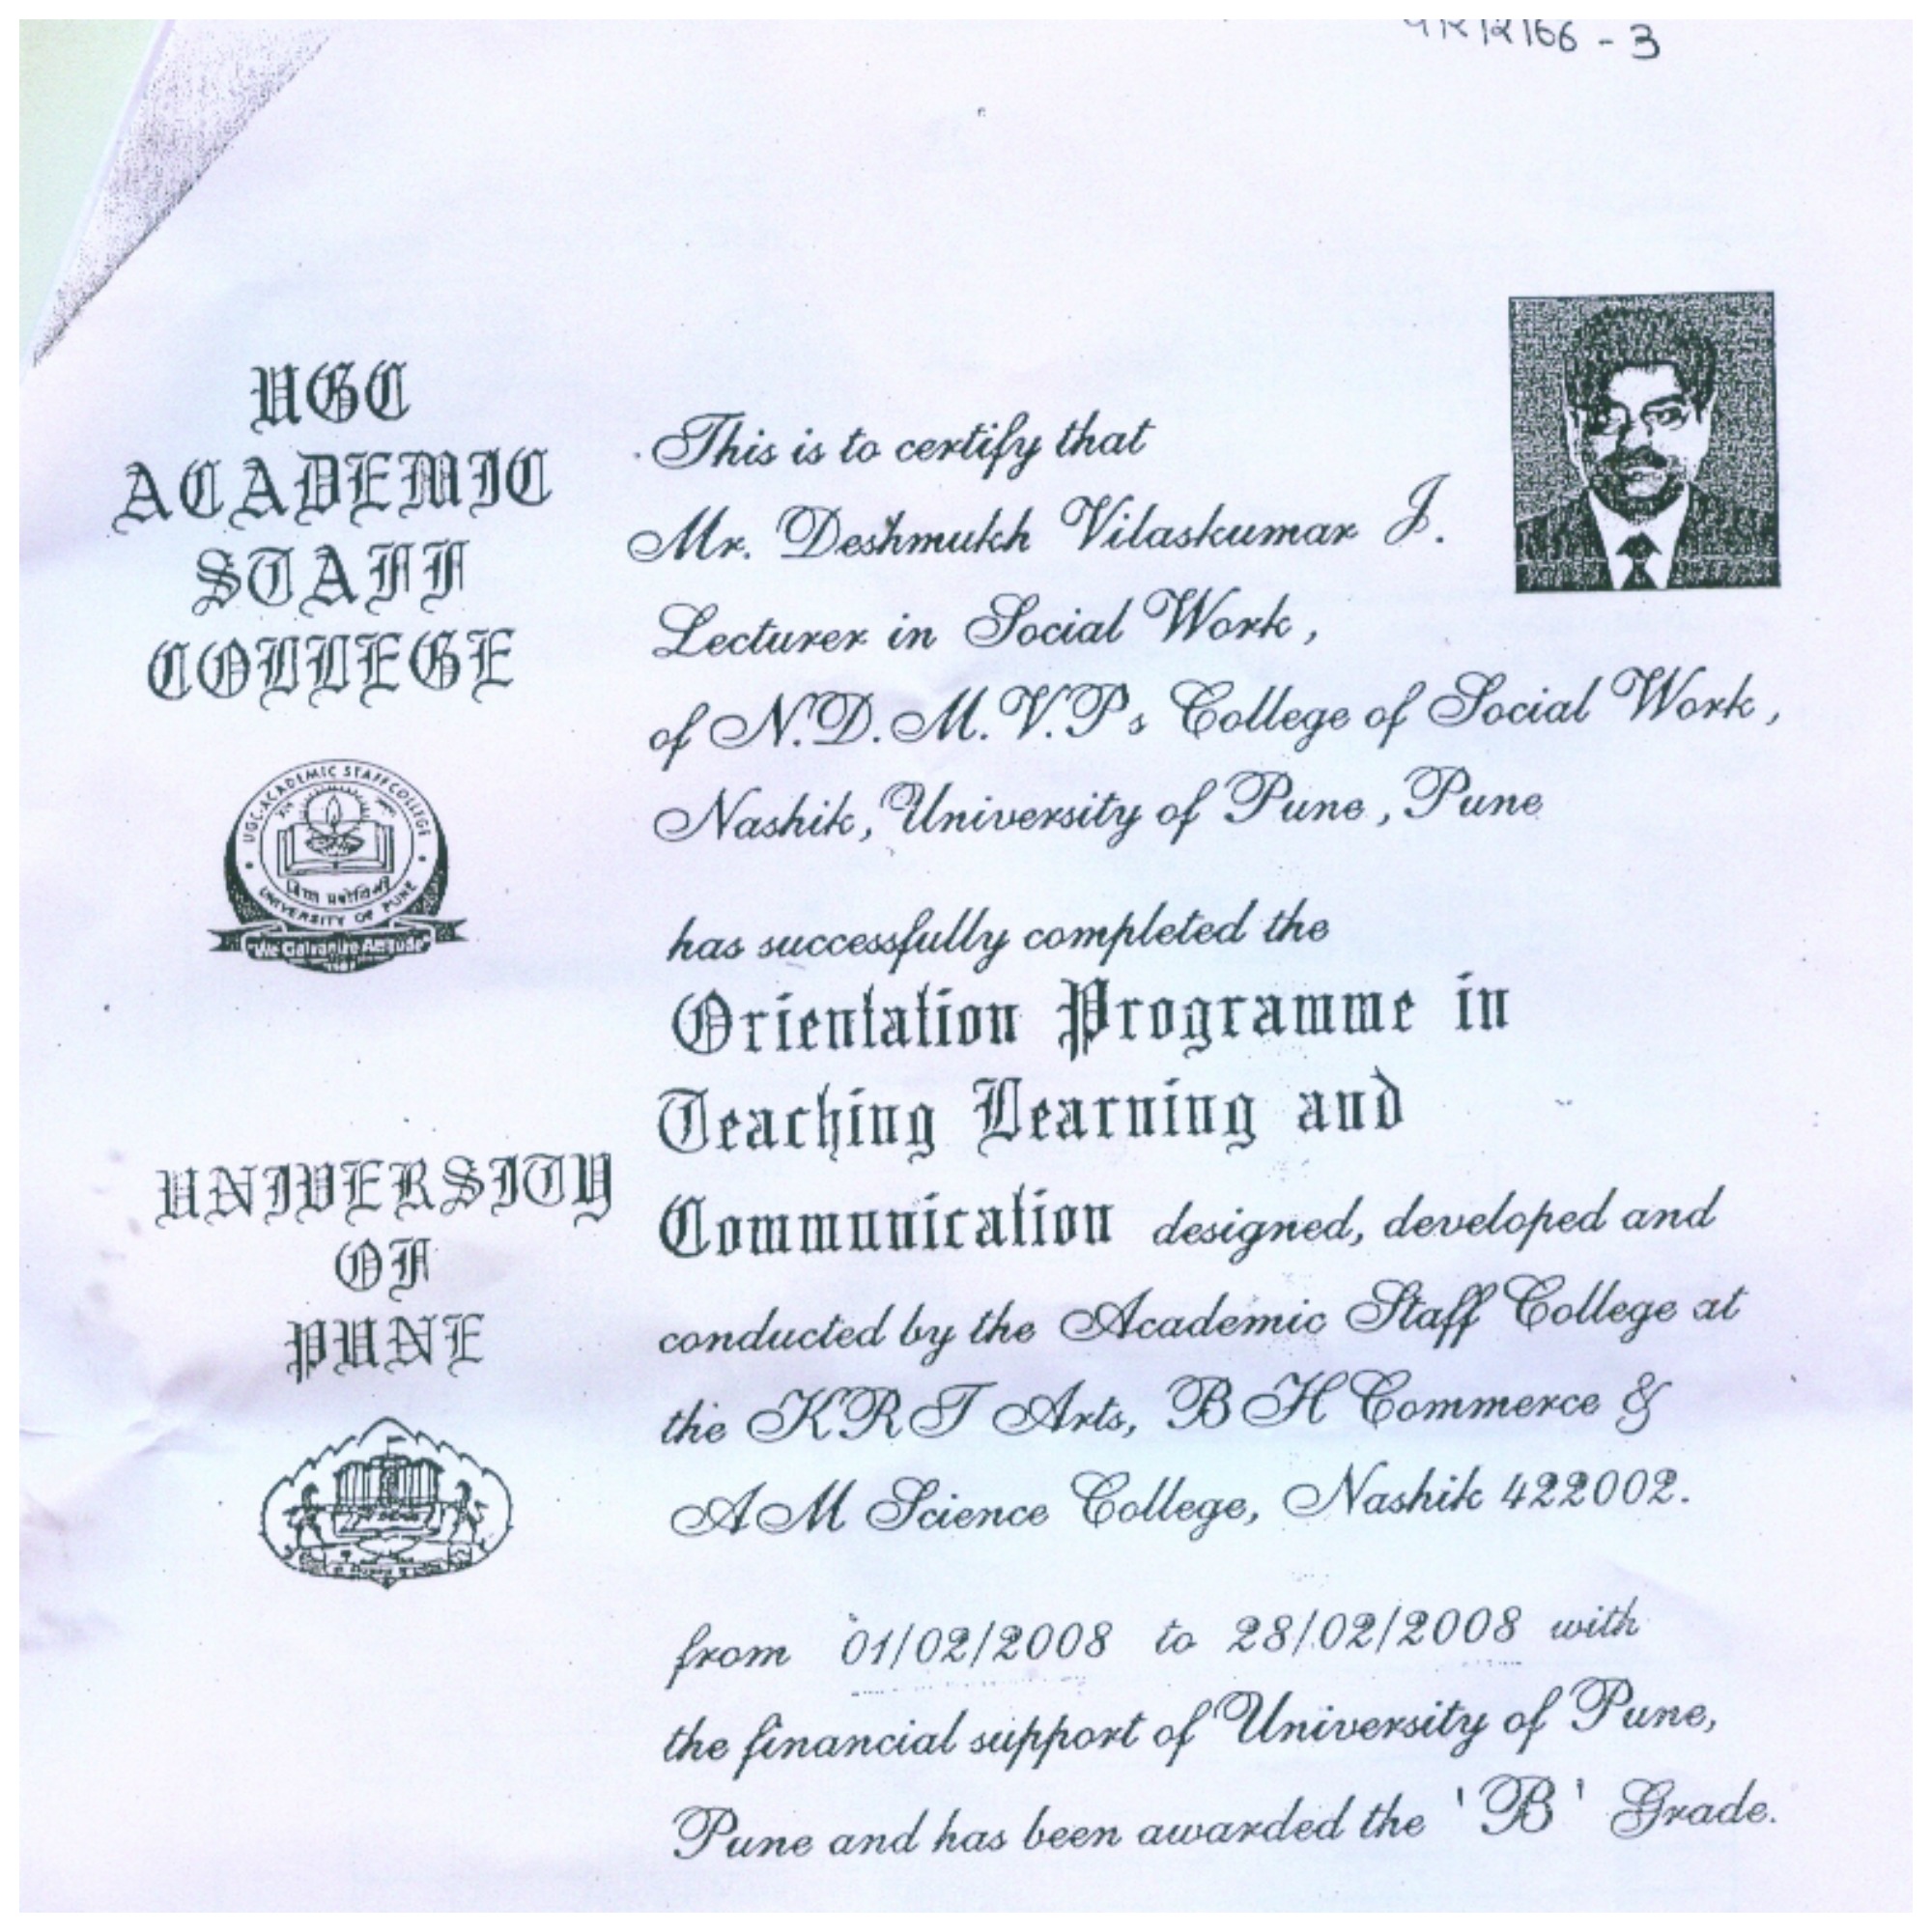 166 - 3
UGC
ACADEMIC
STAFF
COLLEGE
UGC-ACADEMIC STAFF COLLEGE
UNIVERSITY OF PUNE
"We Galvanize Attitude"
UNIVERSITY
OF
PUNE
This is to certify that
Mr. Deshmukh Vilaskumar J.
Lecturer in Social Work,
of N.D.M.V.Ps College of Social Work,
Nashik, University of Pune, Pune
has successfully completed the
Orientation Programme in
Teaching Learning and
Communication designed, developed and
conducted by the Academic Staff College at
the KRT Arts, BH Commerce &
AM Science College, Nashik 422002.
from 01/02/2008 to 28/02/2008 with
the financial support of University of Pune,
Pune and has been awarded the 'B' Grade.